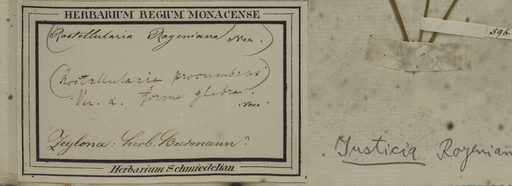 HERBARIUM REGIUM MONACENSE
Rostellularia Royeniana Nees.
Rostellularia procumbens
Var. α. forma glabra.
Nees.
Zeylona: herb. Burmann.
Herbarium Schmiedelian
596.
Justicia Royenian